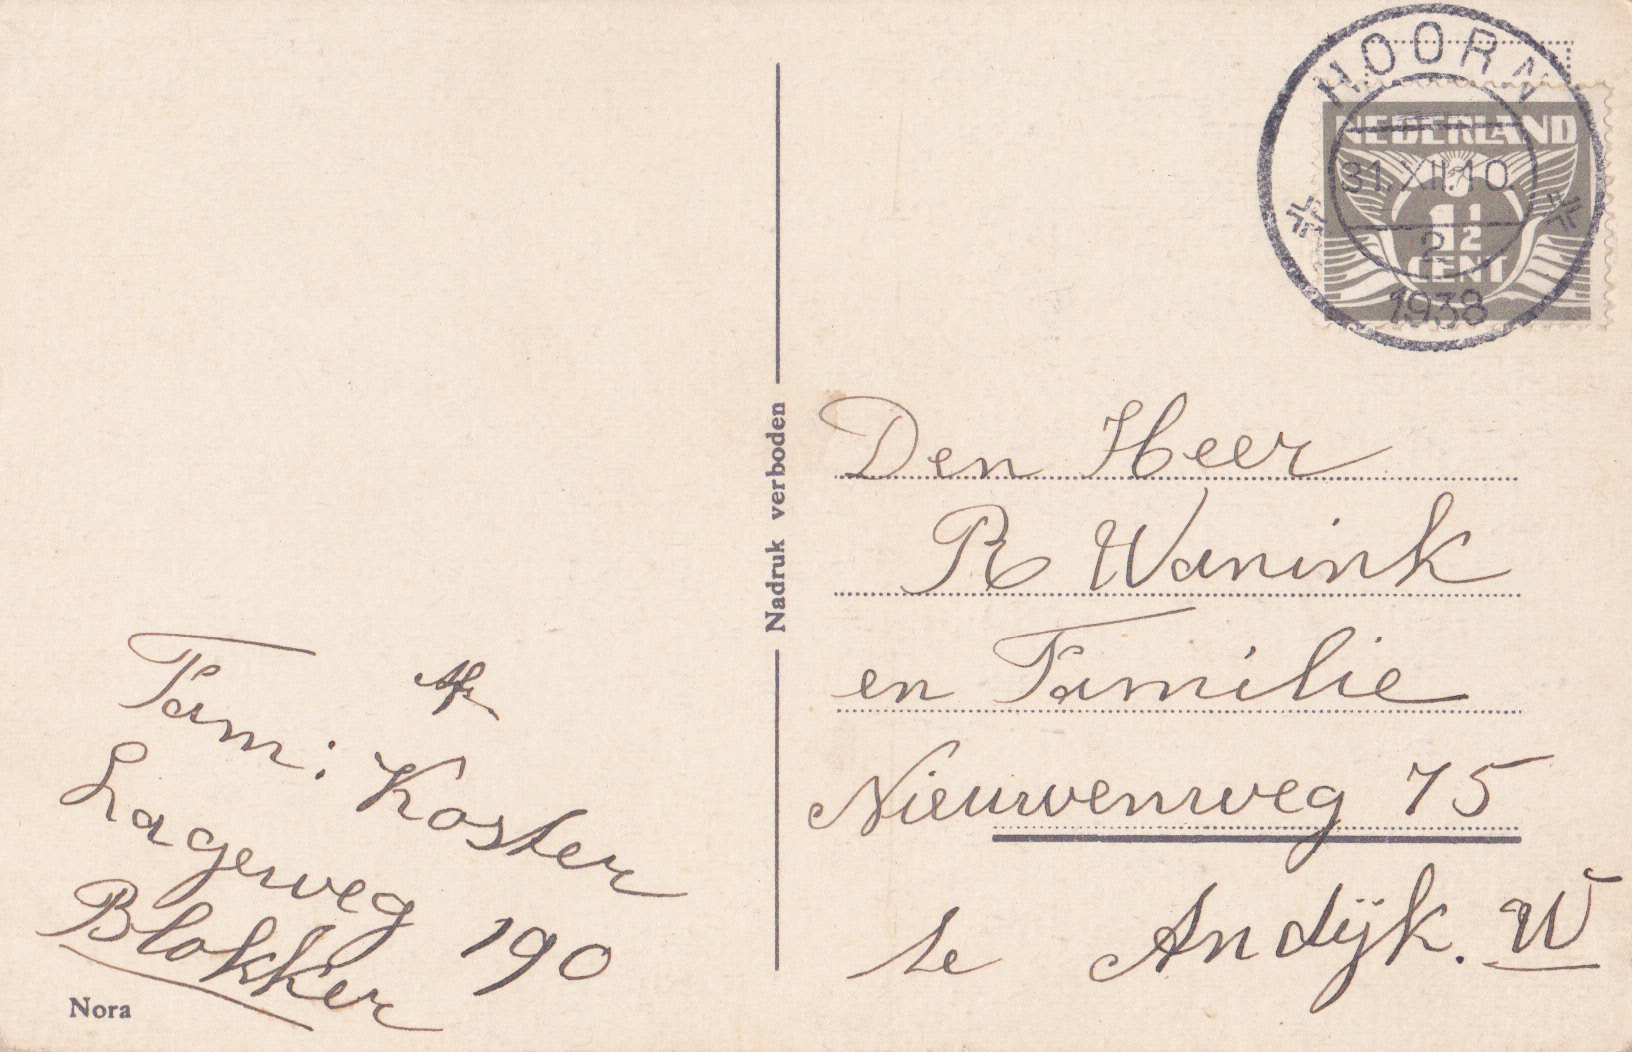 HOORN
NEDERLAND
31.XII.10.
1½
2
CENT
1938
Nadruk verboden
Den Heer
R Wanink
en Familie
Nieuwenweg 75
te Andijk. W
Afz
Fam: Koster
Lageweg 190
Blokker
Nora